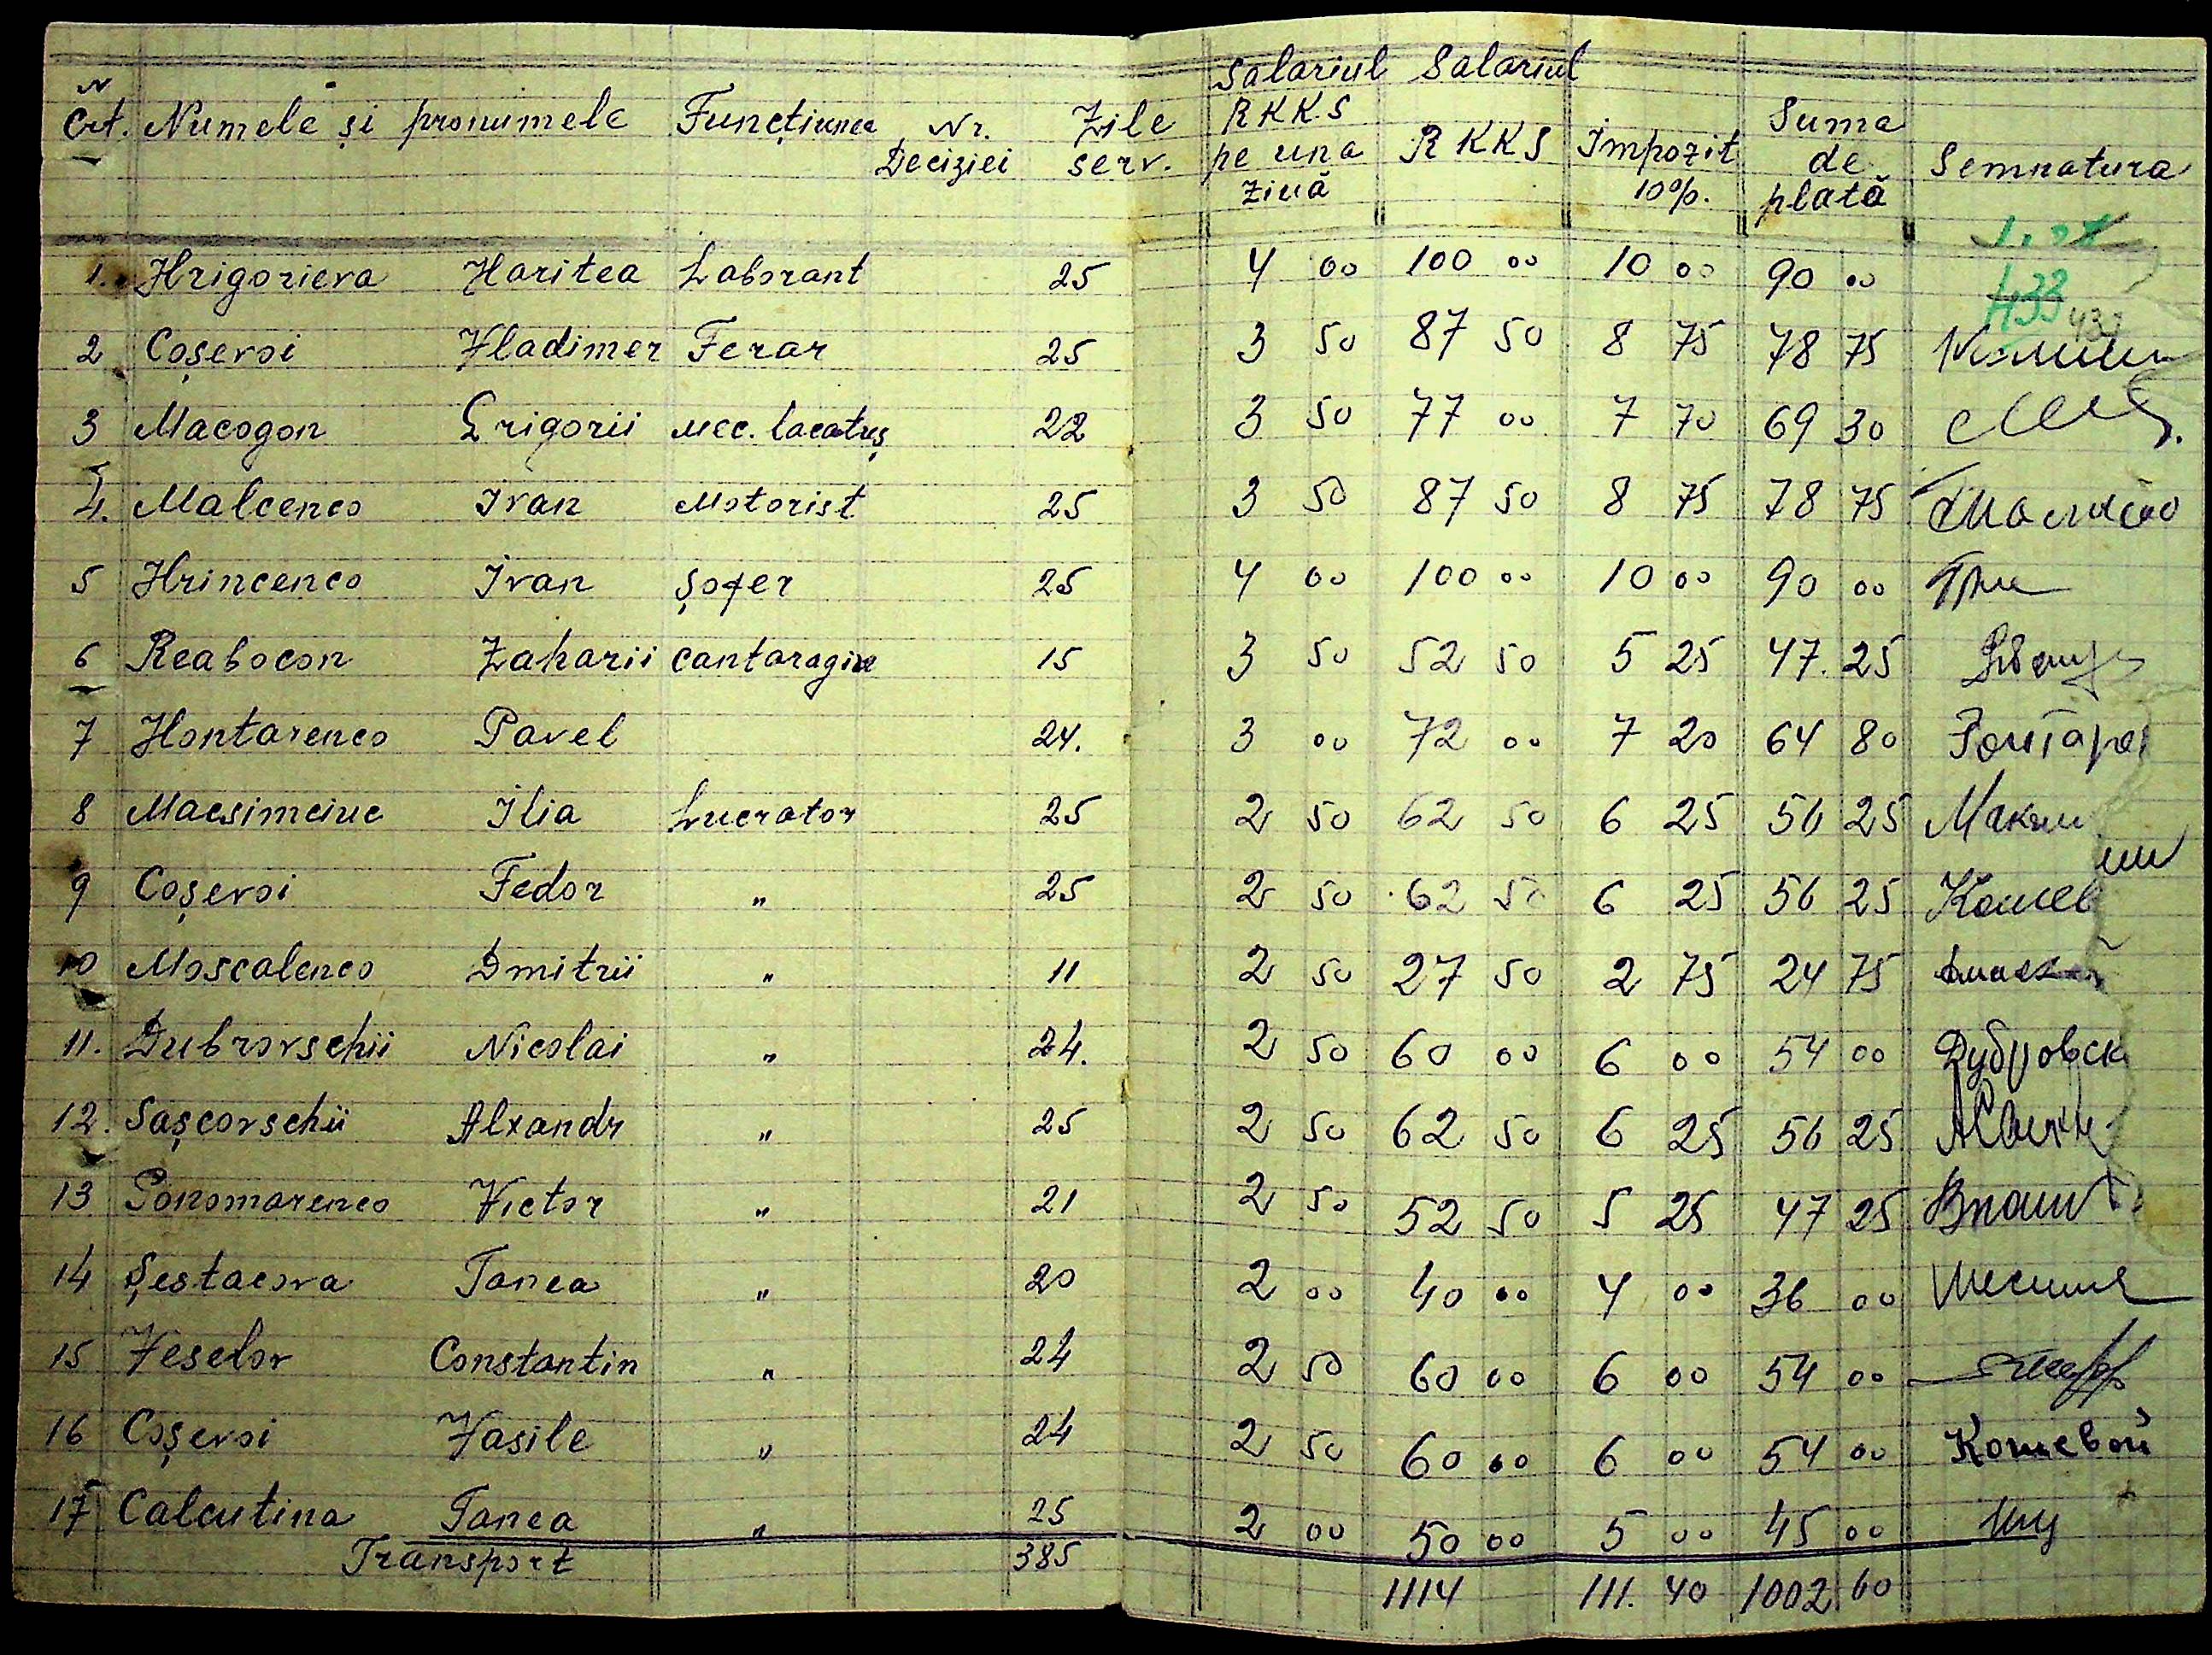 N Crt. Numele și pronumele Funcțiunea Nr. Deciziei Zile serv. Salariul RKKS pe una ziuă Salariul RKKS Impozit 10%. Suma de plată Semnatura
433
1. Hrigorieva Haritea Laborant 25 4 00 100 00 10 00 90 00
2 Coșevoi Vladimer Ferar 25 3 50 87 50 8 75 78 75
3 Macogon Grigorii Mec. lacatuș 22 3 50 77 00 7 70 69 30
4. Malcenco Ivan Motorist 25 3 50 87 50 8 75 78 75
5 Hrincenco Ivan Șofer 25 4 00 100 00 10 00 90 00
6 Reabocon Zaharii cantaragiu 15 3 50 52 50 5 25 47.25
7 Hontarenco Pavel 24. 3 00 72 00 7 20 64 80 Гонтаре
8 Macsimciuc Ilia Lucrator 25 2 50 62 50 6 25 56 25 Максим
9 Coșevoi Fedor " 25 2 50 62 50 6 25 56 25 Кошев
10 Moscalenco Dmitrii " 11 2 50 27 50 2 75 24 75
11. Dubrovschii Nicolai " 24. 2 50 60 00 6 00 54 00 Дубровск
12. Sașcovschii Alxandr " 25 2 50 62 50 6 25 56 25
13 Ponomarenco Victor " 21 2 50 52 50 5 25 47 25
14 Șestacova Tanea " 20 2 00 40 00 4 00 36 00
15 Veselov Constantin " 24 2 50 60 00 6 00 54 00
16 Coșevoi Vasile " 24 2 50 60 00 6 00 54 00 Кошевой
17 Calcutina Tanea " 25 2 00 50 00 5 00 45 00
Transport 385 1114 111.40 1002 60